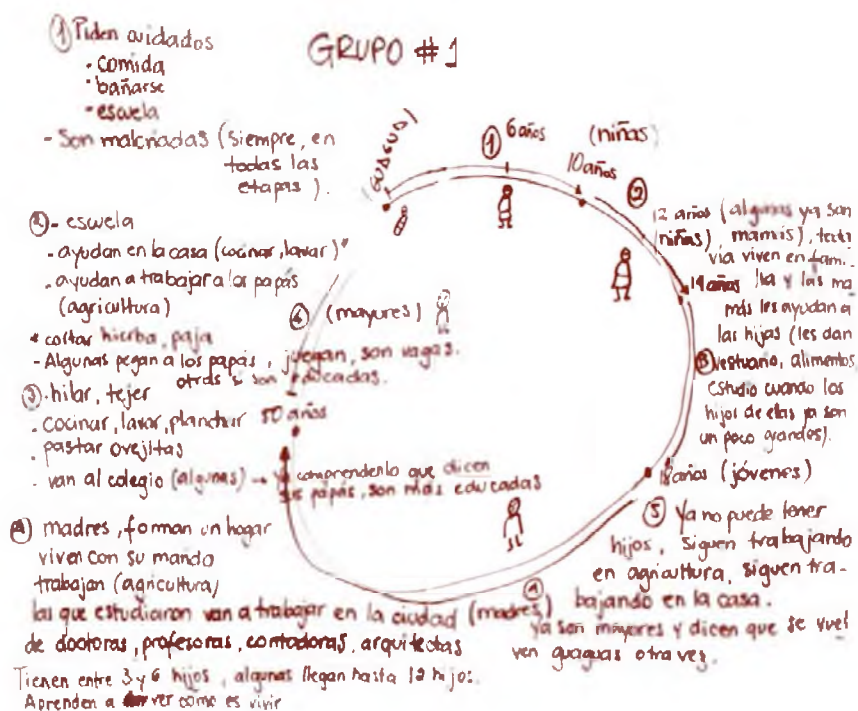 GRUPO #1
① Piden cuidados
· comida
· bañarse
- escuela
- Son malcriadas (siempre, en
todas las
etapas).
②- escuela
- ayudan en la casa (cocinar, lavar)*
- ayudan a trabajar a los papás
(agricultura)
* cortar hierba, paja
- Algunas pegan a los papás, juegan, son vagas.
otras si son educadas.
③ · hilar, tejer
· cocinar, lavar, planchar
· pastar ovejitas
· van al colegio (algunas) → ya comprenden lo que dicen
sus papás, son más educadas
④ madres, forman un hogar
viven con su marido
trabajan (agricultura)
las que estudiaron van a trabajar en la ciudad
de doctoras, profesoras, contadoras, arquitectas
Tienen entre 3 y 6 hijos, algunas llegan hasta 12 hijos.
Aprenden a ver como es vivir
(guagua)
① 6 años
(niñas)
10 años
②
12 años (algunas ya son
(niñas), mamis), toda
via viven en fami-
14 años lia y las ma
más les ayudan a
las hijas (les dan
③ vestuario, alimentos,
estudio cuando los
hijos de ellas ya son
un poco grandes).
18 años (jóvenes)
④ (madres)
50 años
(mayores)
⑤ Ya no puede tener
hijos, siguen trabajando
en agricultura, siguen tra-
bajando en la casa.
ya son mayores y dicen que se vuel
ven guaguas otra vez.